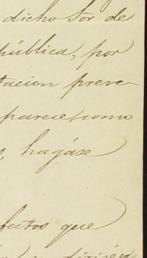 dicho Sor de
pública, por
tacion preve
parece, como
, hagáse
fectos que